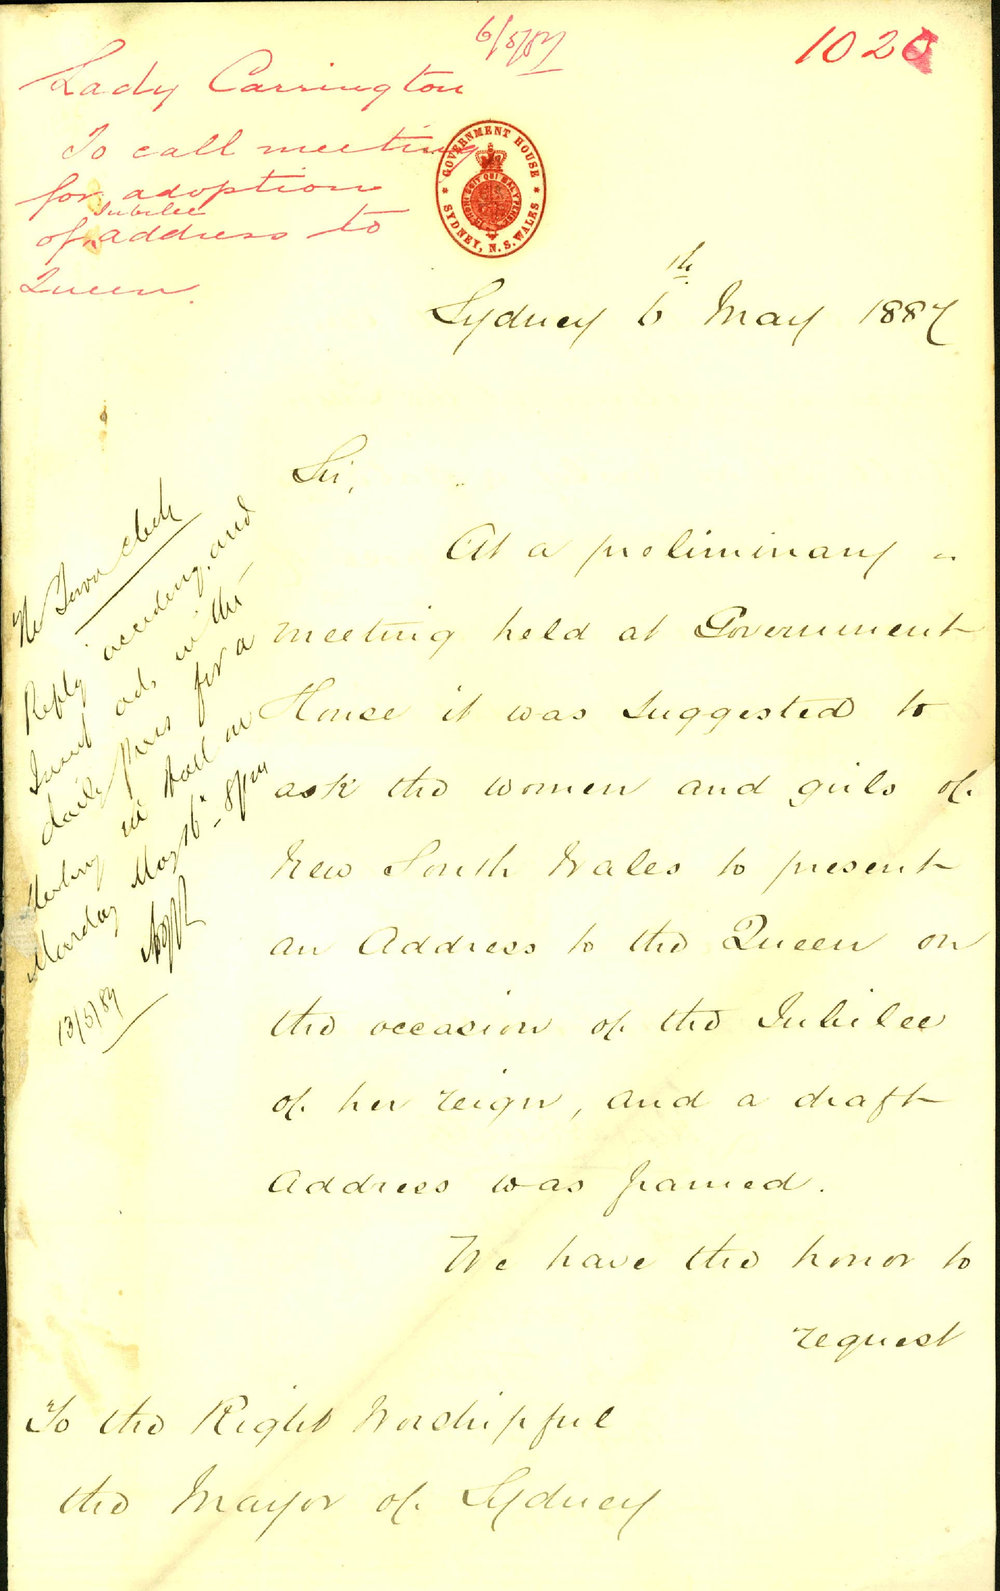 6/5/87
102
Lady Carrington
To call meeting
for adoption
Jubilee
of address to
Queen.
GOVERNMENT HOUSE
SYDNEY, N.S. WALES
Sydney 6th May 1887
Sir,
At a preliminary
meeting held at Government
House it was suggested to
ask the women and girls of
New South Wales to present
an Address to the Queen on
the occasion of the Jubilee
of her reign, and a draft
Address was framed.
We have the honor to
request
To the Right Worshipful
the Mayor of Sydney
The Town Clerk
Reply accordingly and
Insert ad. in the
daily press for a
Meeting in Hall on
Monday May 16th 8 pm
13/5/87